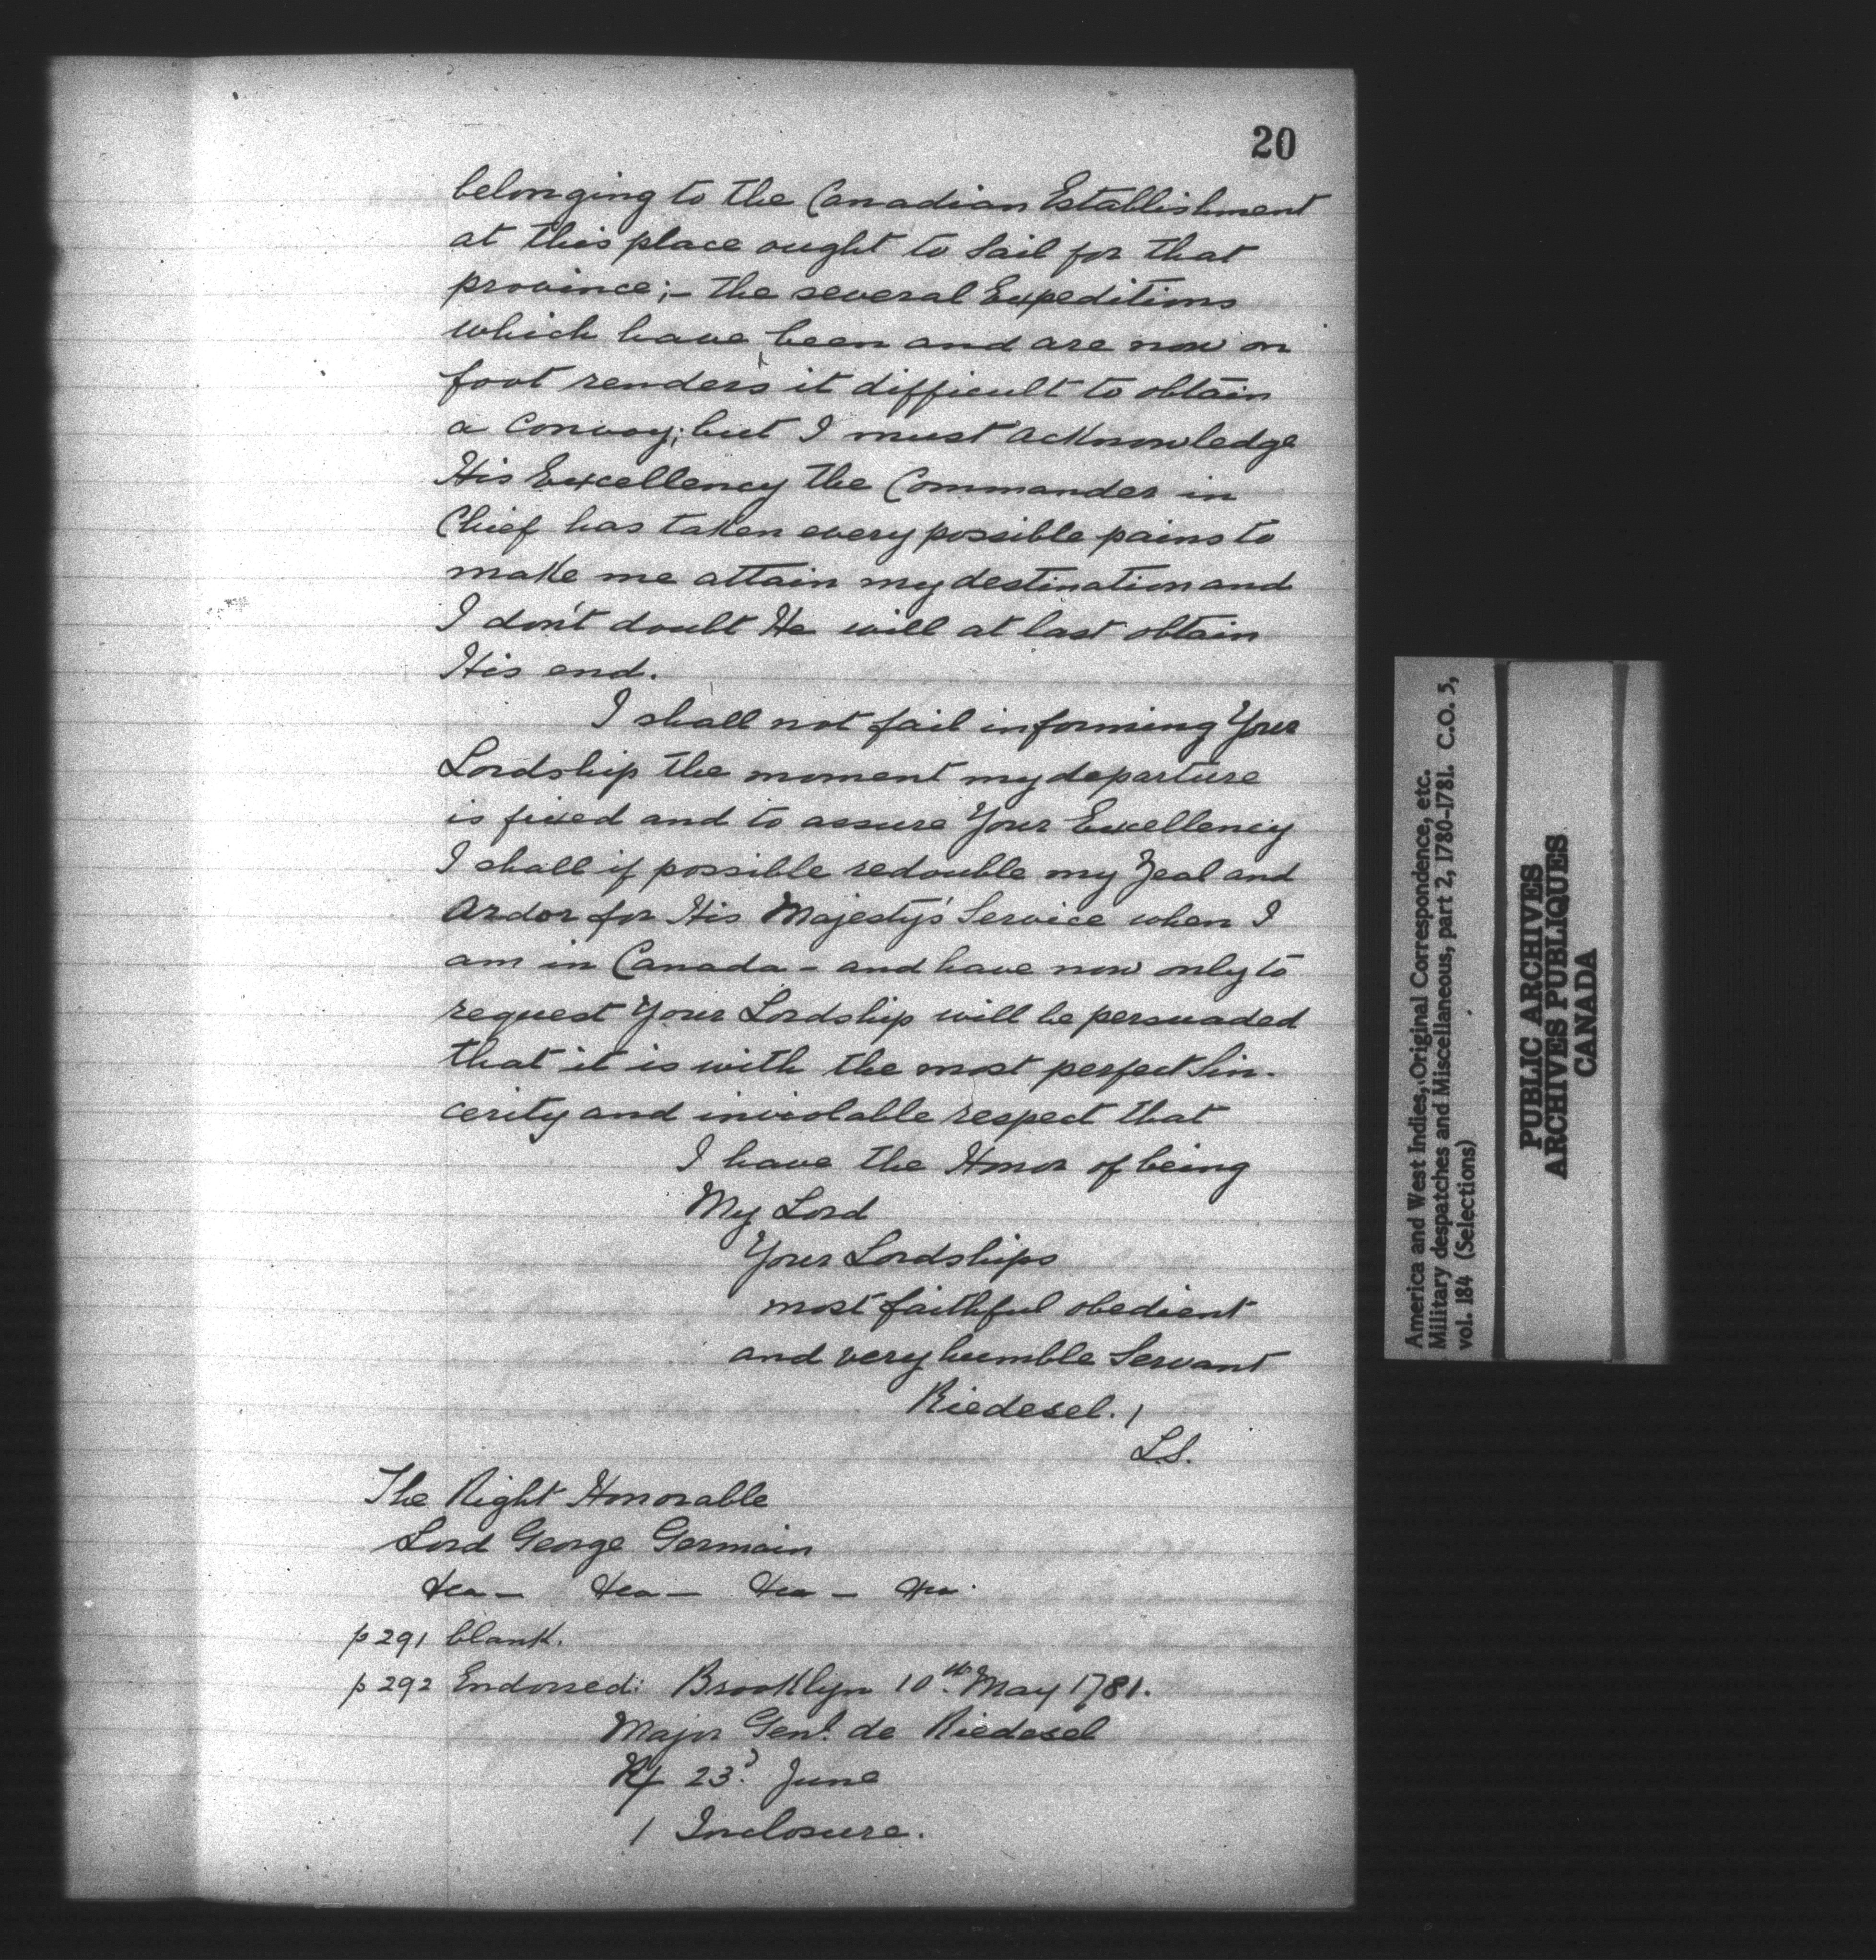 20
belonging to the Canadian Establishment
at this place ought to Sail for that
province;- the several Expeditions
which have been and are now on
foot renders it difficult to obtain
a Convoy; but I must acknowledge
His Excellency the Commander in
Chief has taken every possible pains to
make me attain my destination and
I don't doubt He will at last obtain
His end.
I shall not fail informing Your
Lordship the moment my departure
is fixed and to assure Your Excellency
I shall if possible redouble my Zeal and
Ardor for His Majesty's Service when I
am in Canada - and have now only to
request Your Lordship will be persuaded
that it is with the most perfect Sin-
cerity and inviolable respect that
I have the Honor of being
My Lord
Your Lordships
most faithful obedient
and very humble Servant
Riedesel. /
L.S.
The Right Honorable
Lord George Germain
&ca - &ca - &ca - &ca.
p 291 blank.
p 292 Endorsed: Brooklyn 10th May 1781.
Major Genl. de Riedesel
R/ 23d. June
1 Inclosure.
America and West Indies, Original Correspondence, etc.
Military despatches and Miscellaneous, part 2, 1780-1781. C.O. 5,
vol. 184 (Selections)
PUBLIC ARCHIVES
ARCHIVES PUBLIQUES
CANADA